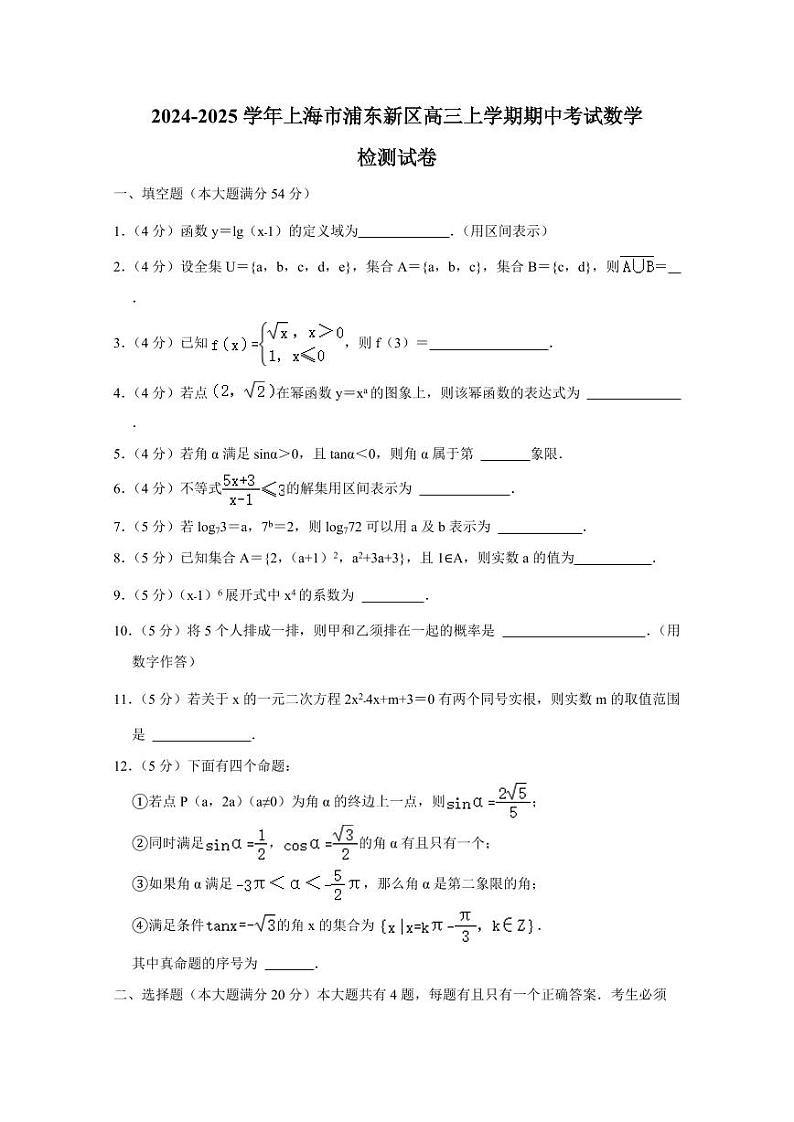 2024-2025 学年上海市浦东新区高三上学期期中考试数学
检测试卷
一、填空题（本大题满分 54 分）
1.（4 分）函数 y＝lg（x-1）的定义域为_____________.（用区间表示）
2.（4 分）设全集 U＝{a，b，c，d，e}，集合 A＝{a，b，c}，集合 B＝{c，d}，则\overline{A∪B}＝__
.
3.（4 分）已知 f(x)={√x，x＞0
1，x≤0 ，则 f（3）＝_________________.
4.（4 分）若点（2，√2）在幂函数 y＝xᵃ 的图象上，则该幂函数的表达式为 ______________
.
5.（4 分）若角 α 满足 sinα＞0，且 tanα＜0，则角 α 属于第 _______象限.
6.（4 分）不等式 (5x+3)/(x-1)≤3 的解集用区间表示为 _____________.
7.（5 分）若 log₇3＝a，7ᵇ＝2，则 log₇72 可以用 a 及 b 表示为 ____________.
8.（5 分）已知集合 A＝{2，（a+1）²，a²+3a+3}，且 1∈A，则实数 a 的值为___________.
9.（5 分）（x-1）⁶ 展开式中 x⁴ 的系数为 _________.
10.（5 分）将 5 个人排成一排，则甲和乙须排在一起的概率是 _____________________.（用
数字作答）
11.（5 分）若关于 x 的一元二次方程 2x²-4x+m+3＝0 有两个同号实根，则实数 m 的取值范围
是 ______________.
12.（5 分）下面有四个命题：
①若点 P（a，2a）（a≠0）为角 α 的终边上一点，则 sinα=2√5/5；
②同时满足 sinα=1/2，cosα=√3/2 的角 α 有且只有一个；
③如果角 α 满足 -3π＜α＜-5/2π，那么角 α 是第二象限的角；
④满足条件 tanx=-√3 的角 x 的集合为 {x|x=kπ-π/3，k∈Z}.
其中真命题的序号为 _______.
二、选择题（本大题满分 20 分）本大题共有 4 题，每题有且只有一个正确答案．考生必须